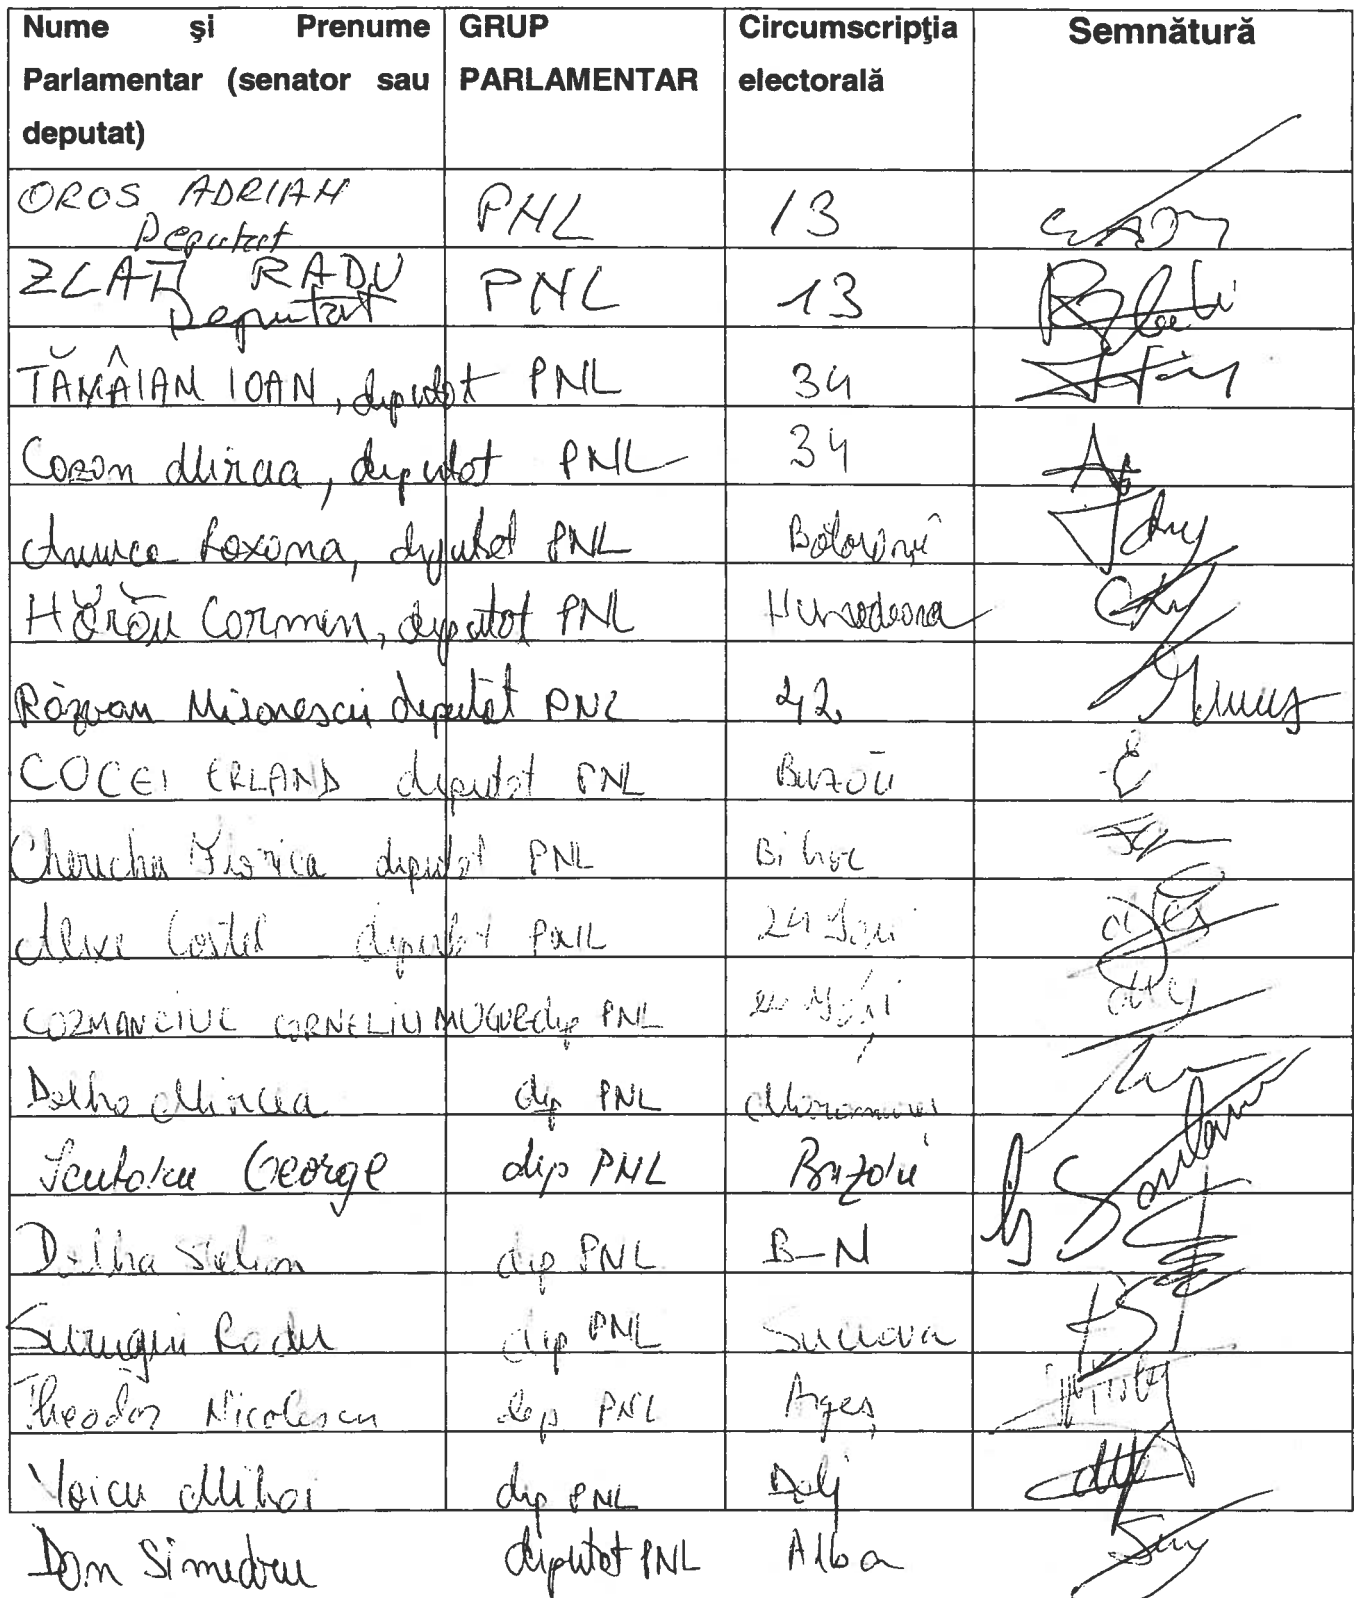 Nume și Prenume Parlamentar (senator sau deputat) GRUP PARLAMENTAR Circumscripţia electorală Semnătură
OROS ADRIAN PNL 13
Deputat
ZLATI RADU PNL 13
Deputat
TĂMÂIAN IOAN, deputat PNL 34
Cozan Mircea, deputat PNL 34
Roxana, deputat PNL Botoșani
Hărău Cormen, deputat PNL Hunedoara
Răzvan Mironescu deputat PNL 42
COCEI ERLAND deputat PNL Buzău
Cherecheș Florica deputat PNL Bihor
Alexe Costel deputat PNL 24 Iași
COZMANCIUC CORNELIU MUGUREL dep PNL Iași
Dolha Mircea dep PNL Maramureș
Scutaru George dep PNL Buzău
Dolha Stelian dep PNL B-N
Surugiu Radu dep PNL Suceava
Theodor Nicolescu dep PNL Argeș
Voicu Mihai dep PNL Dolj
Dan Simedru deputat PNL Alba